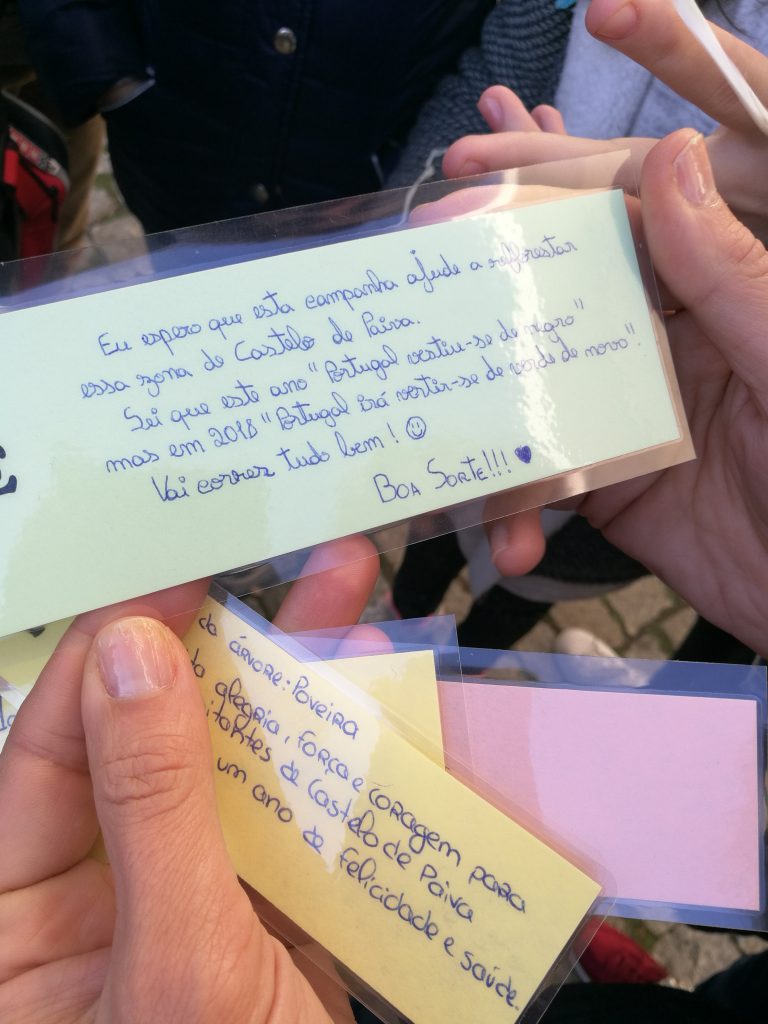 Eu espero que esta campanha ajude a reflorestar
essa zona de Castelo de Paiva.
Sei que este ano "Portugal vestiu-se de negro"
mas em 2018 "Portugal irá vestir-se de verde de novo".
Vai correr tudo bem! ☺
BOA SORTE!!! ♥
da árvore: Poveira
alegria, força e coragem para
de Castelo de Paiva
um ano de felicidade e saúde.